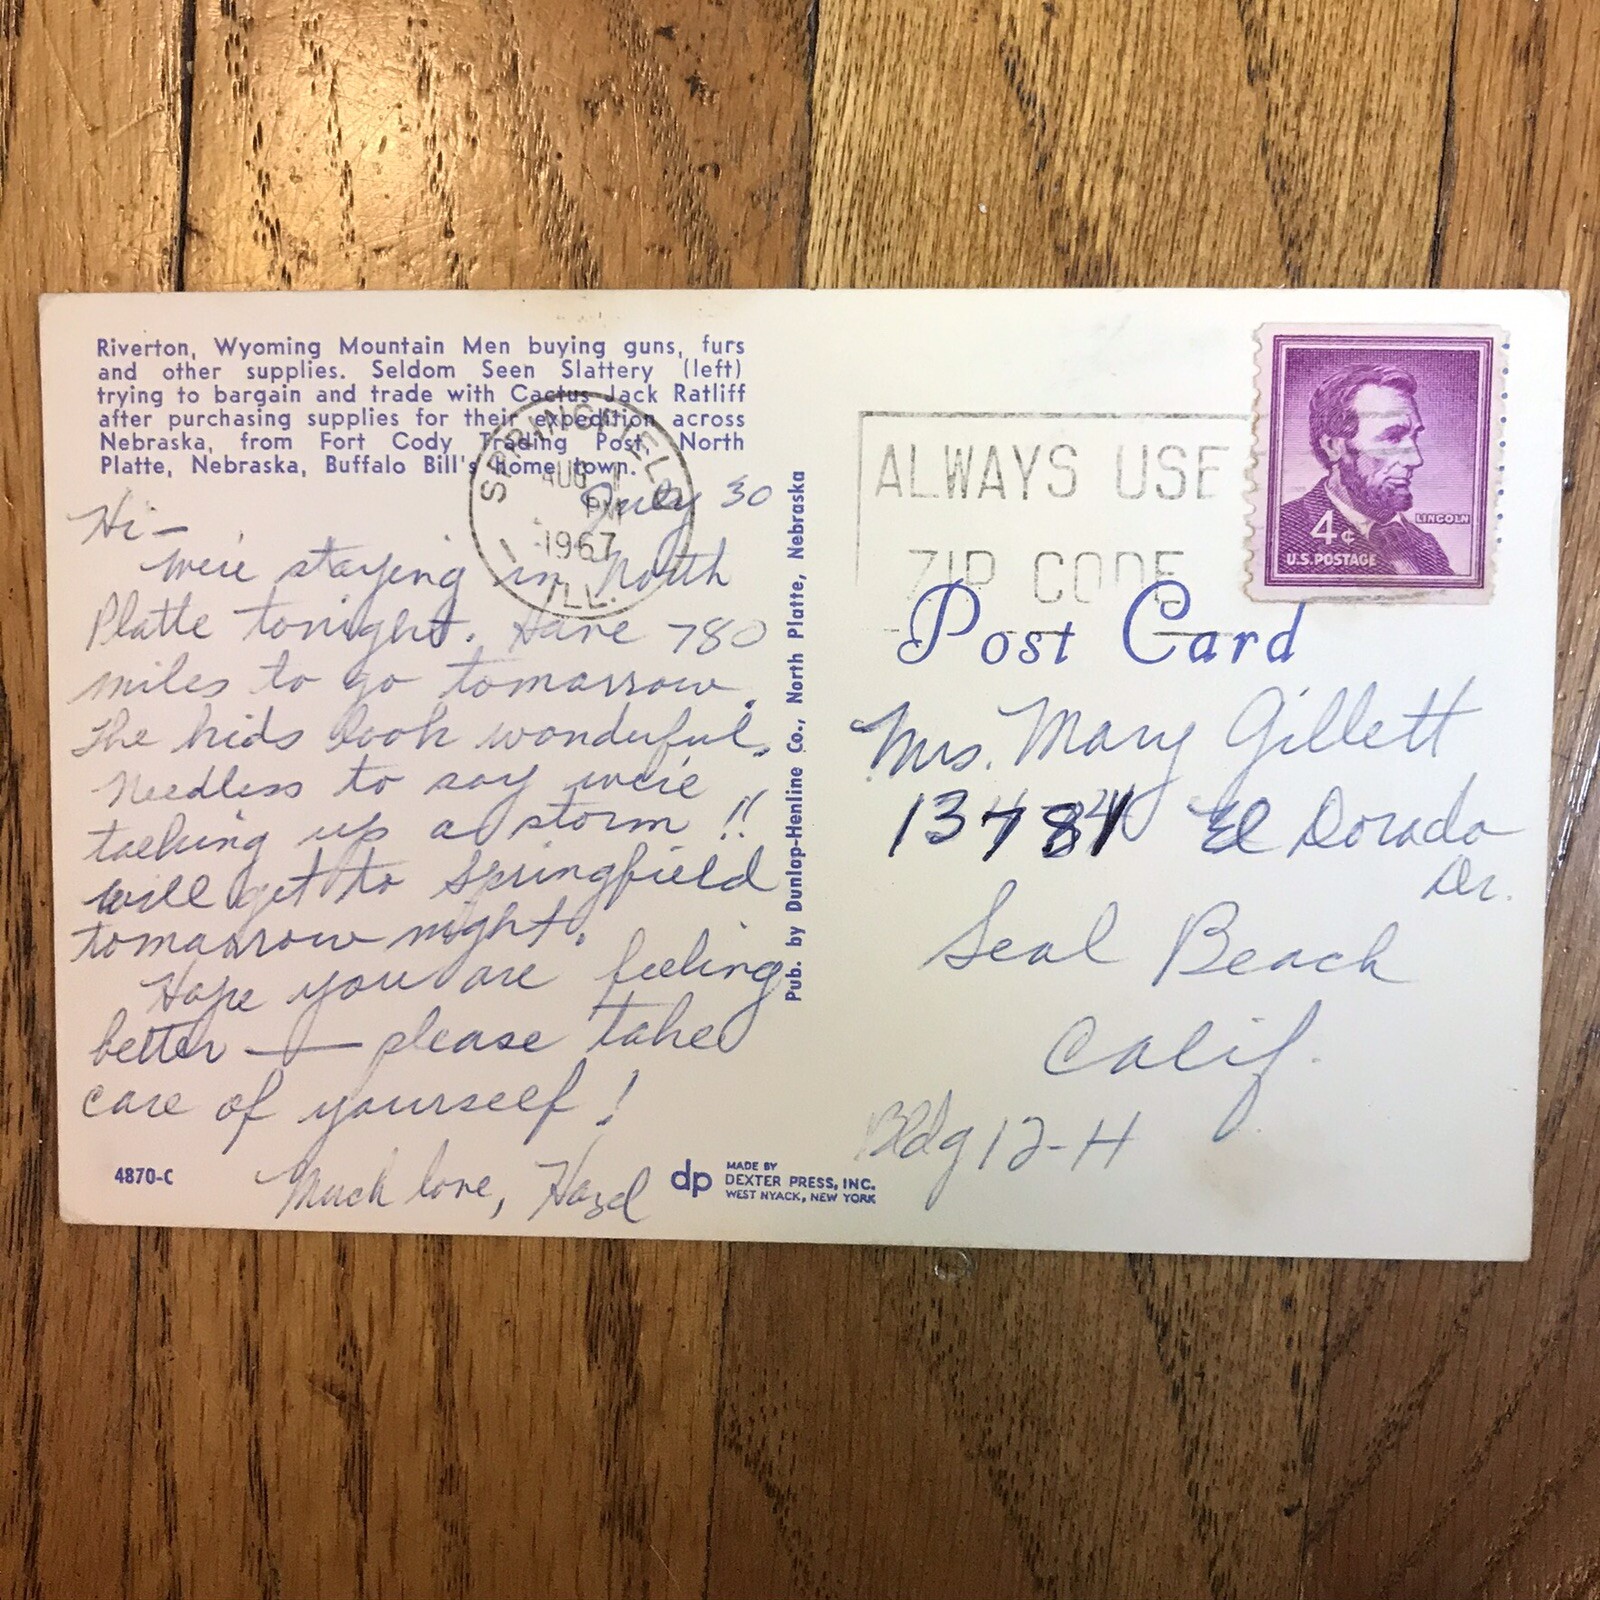 Riverton, Wyoming Mountain Men buying guns, furs
and other supplies. Seldom Seen Slattery (left)
trying to bargain and trade with Cactus Jack Ratliff
after purchasing supplies for their expedition across
Nebraska, from Fort Cody Trading Post, North
Platte, Nebraska, Buffalo Bill's home town.
SPRINGFIELD
AUG 1
PM
1967
ILL.
July 30
Hi-
We're staying in North
Platte tonight. Have 780
miles to go tomorrow.
The kids look wonderful.
Needless to say we're
talking up a storm!!
Will get to Springfield
tomorrow night.
Hope you are feeling
better — please take
care of yourself!
Much love, Hazel
4870-C
Pub. by Dunlap-Henline Co., North Platte, Nebraska
dp
MADE BY
DEXTER PRESS, INC.
WEST NYACK, NEW YORK
ALWAYS USE
ZIP CODE
4¢
LINCOLN
U.S. POSTAGE
Post Card
Mrs. Mary Gillett
El Dorado
Dr.
Seal Beach
Calif.
Bldg 12-H